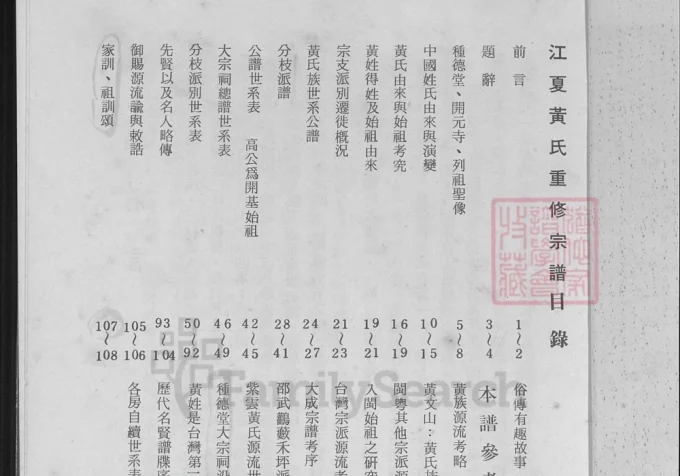 江夏黃氏重修宗譜目錄
前言 1~2
題辭 3~4
種德堂、開元寺、列祖聖像 5~8
中國姓氏由來與演變 10~15
黃氏由來與始祖考究 16~19
黃姓得姓及始祖由來 19~21
宗支派別遷徙概況 21~23
黃氏族世系公譜 24~27
分枝派譜 28~41
公譜世系表 高公爲開基始祖 42~45
大宗祠總譜世系表 46~49
分枝派別世系表 50~92
先賢以及名人略傳 93~104
御賜源流論與敕誥 105~106
家訓、祖訓頌 107~108
俗傳有趣故事
本譜參考
黃族源流考略
黃文山：黃氏族
閩粵其他宗派源
入閩始祖之研究
台灣宗派源流考
大成宗譜考序
邵武鸛藪禾坪派
紫雲黃氏源流世
種德堂大宗祠沿
黃姓是台灣第三
歷代名賢譜牒序
各房自續世系表
FamilySearch